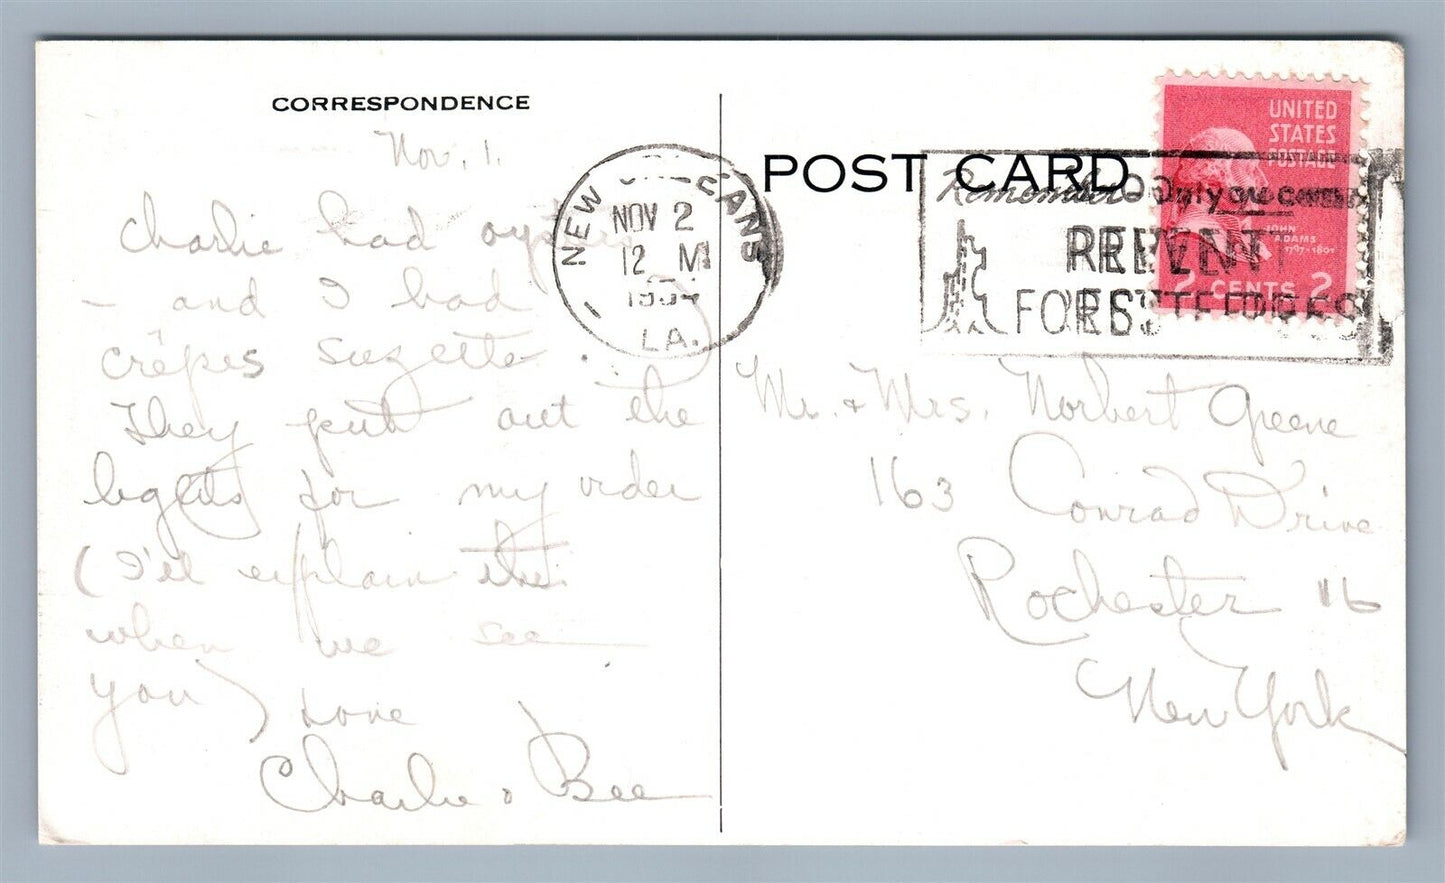 CORRESPONDENCE
Nov. 1.
Charlie had oysters
- and I had
crêpes suzette.
They put out the
lights for my order
(I'll explain this
when we see
you) Love
Charlie & Bee
NEW ORLEANS
NOV 2
12 M
1954
LA.
POST CARD
Remember - Only you can
PREVENT
FOREST FIRES
UNITED
STATES
POSTAGE
JOHN
ADAMS
1797-1801
2 CENTS 2
Mr. & Mrs. Norbert Greene
163 Conrad Drive
Rochester 16
New York